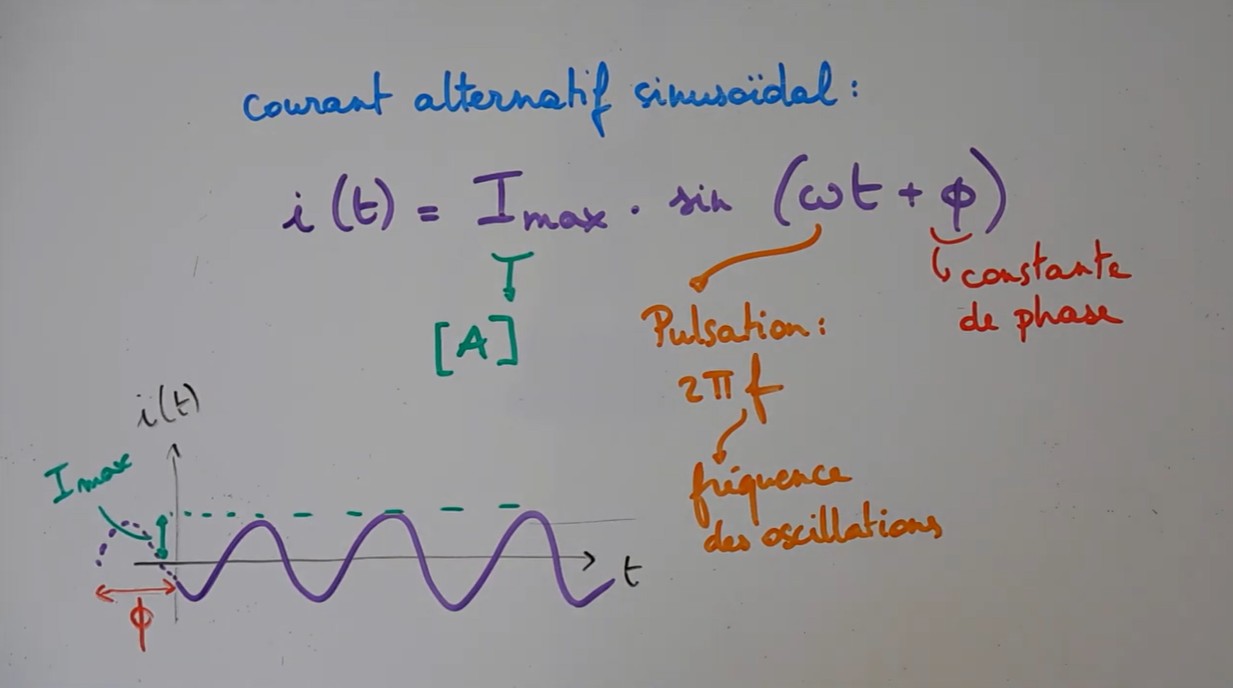 courant alternatif sinusoïdal :
i(t) = Imax · sin (ωt + ϕ)
[A]
Pulsation :
2πf
fréquence
des oscillations
constante
de phase
i(t)
Imax
ϕ
t